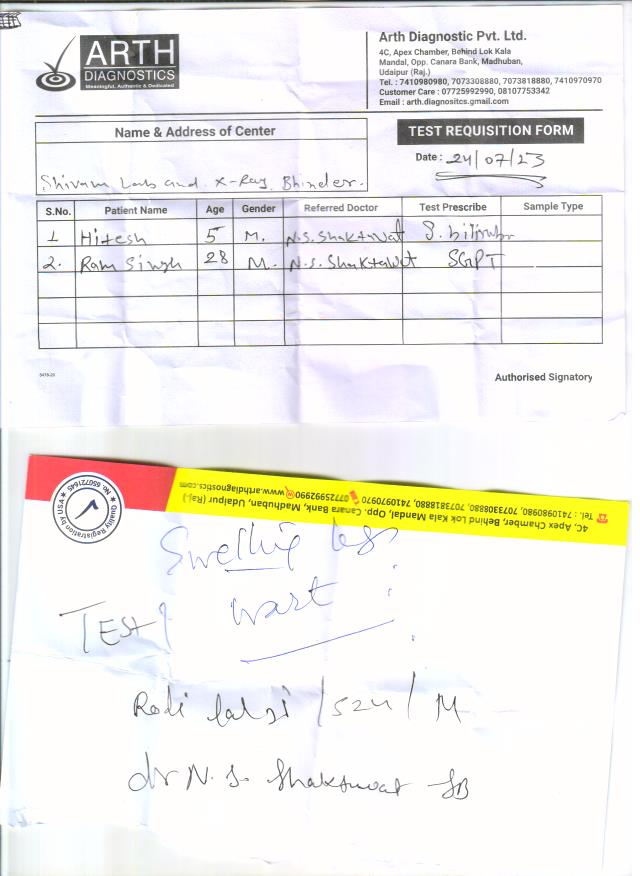 ARTH
DIAGNOSTICS
Meaningful, Authentic & Dedicated
Arth Diagnostic Pvt. Ltd.
4C, Apex Chamber, Behind Lok Kala
Mandal, Opp. Canara Bank, Madhuban,
Udaipur (Raj.)
Tel. : 7410980980, 7073308880, 7073818880, 7410970970
Customer Care : 07725992990, 08107753342
Email : arth.diagnositcs.gmail.com
Name & Address of Center
Shivam Lab and X-Ray Bhinder.
TEST REQUISITION FORM
Date : 24/07/23
S.No. Patient Name Age Gender Referred Doctor Test Prescribe Sample Type
1 Hitesh 5 M. N.S. Shaktwat S. bilirubin
2. Ram Singh 28 M. N.S. Shaktawat SGPT
5478-20
Authorised Signatory
Quality Registration by USA
No. 650721645
4C, Apex Chamber, Behind Lok Kala Mandal, Opp. Canara Bank, Madhuban, Udaipur (Raj.)
Tel. : 7410980980, 7073308880, 7073818880, 7410970970 07725992990 www.arthdiagnostics.com
Swelling
Test? wart
/52y/ M
dr N. S. Shaktwat